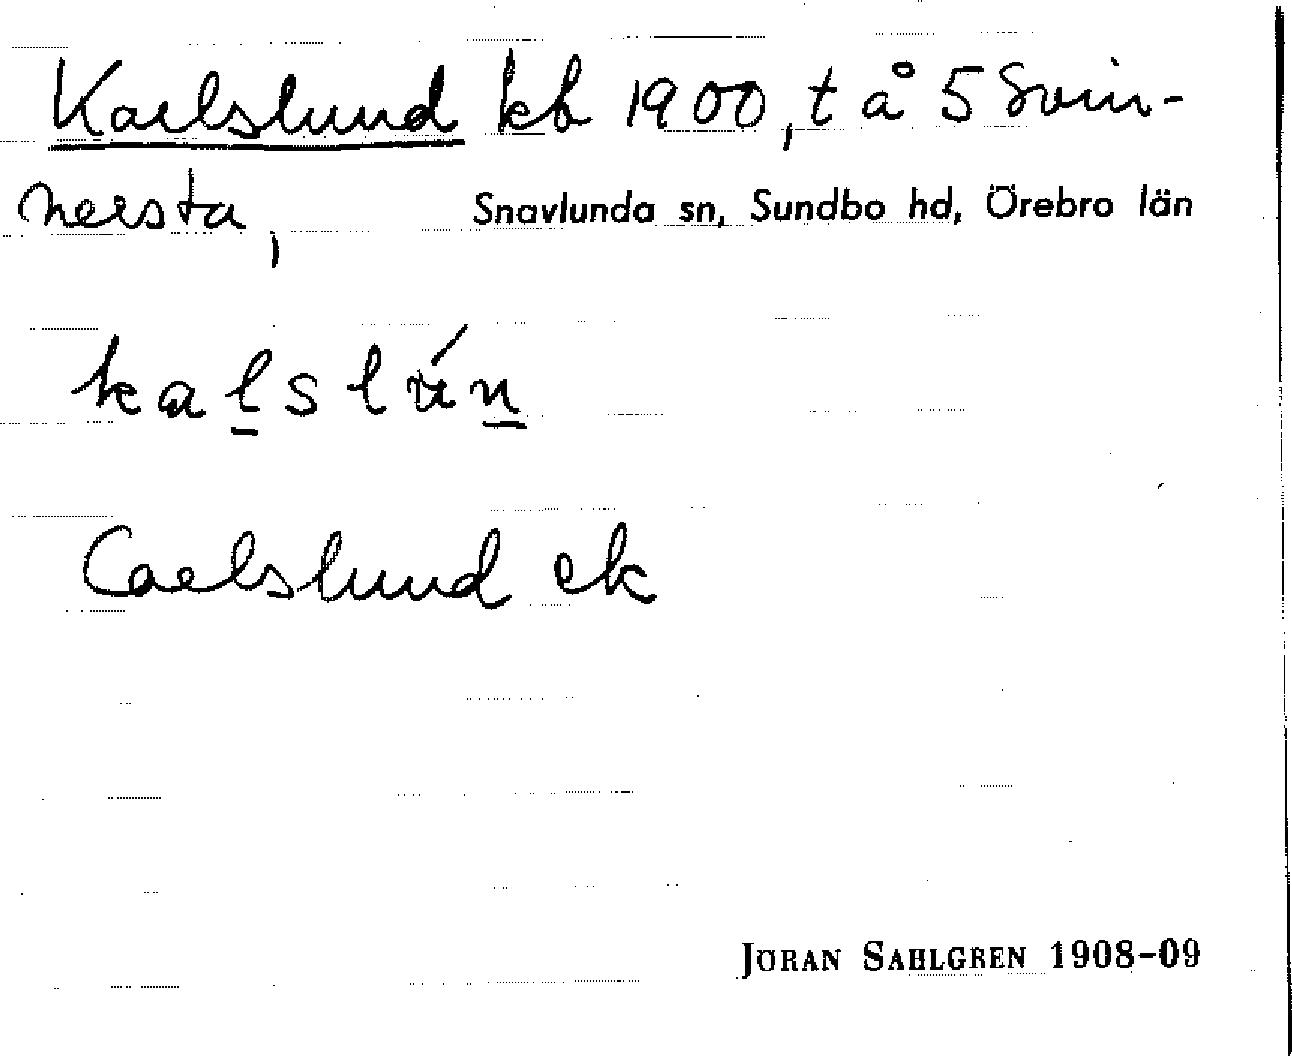 Karlslund kb 1900, t å 5 Svin-
nersta, Snavlunda sn, Sundbo hd, Örebro län
kalslún
Carlslund ek
JÖRAN SAHLGREN 1908-09